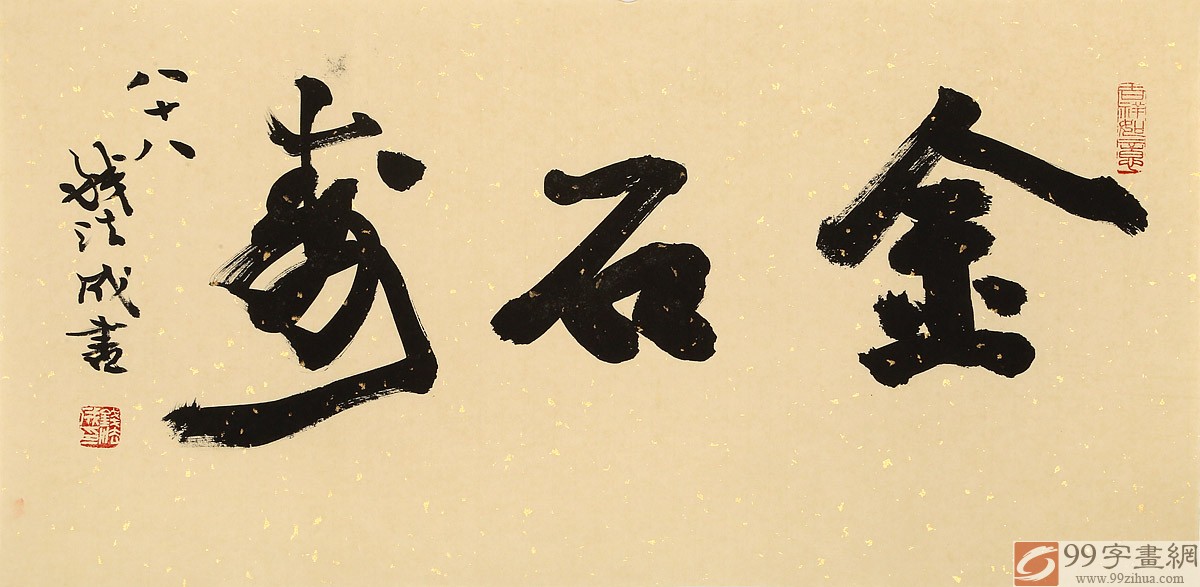 吉祥如意
金石寿
八十八
钱法成書
錢法成印
99字畫網
www.99zihua.com